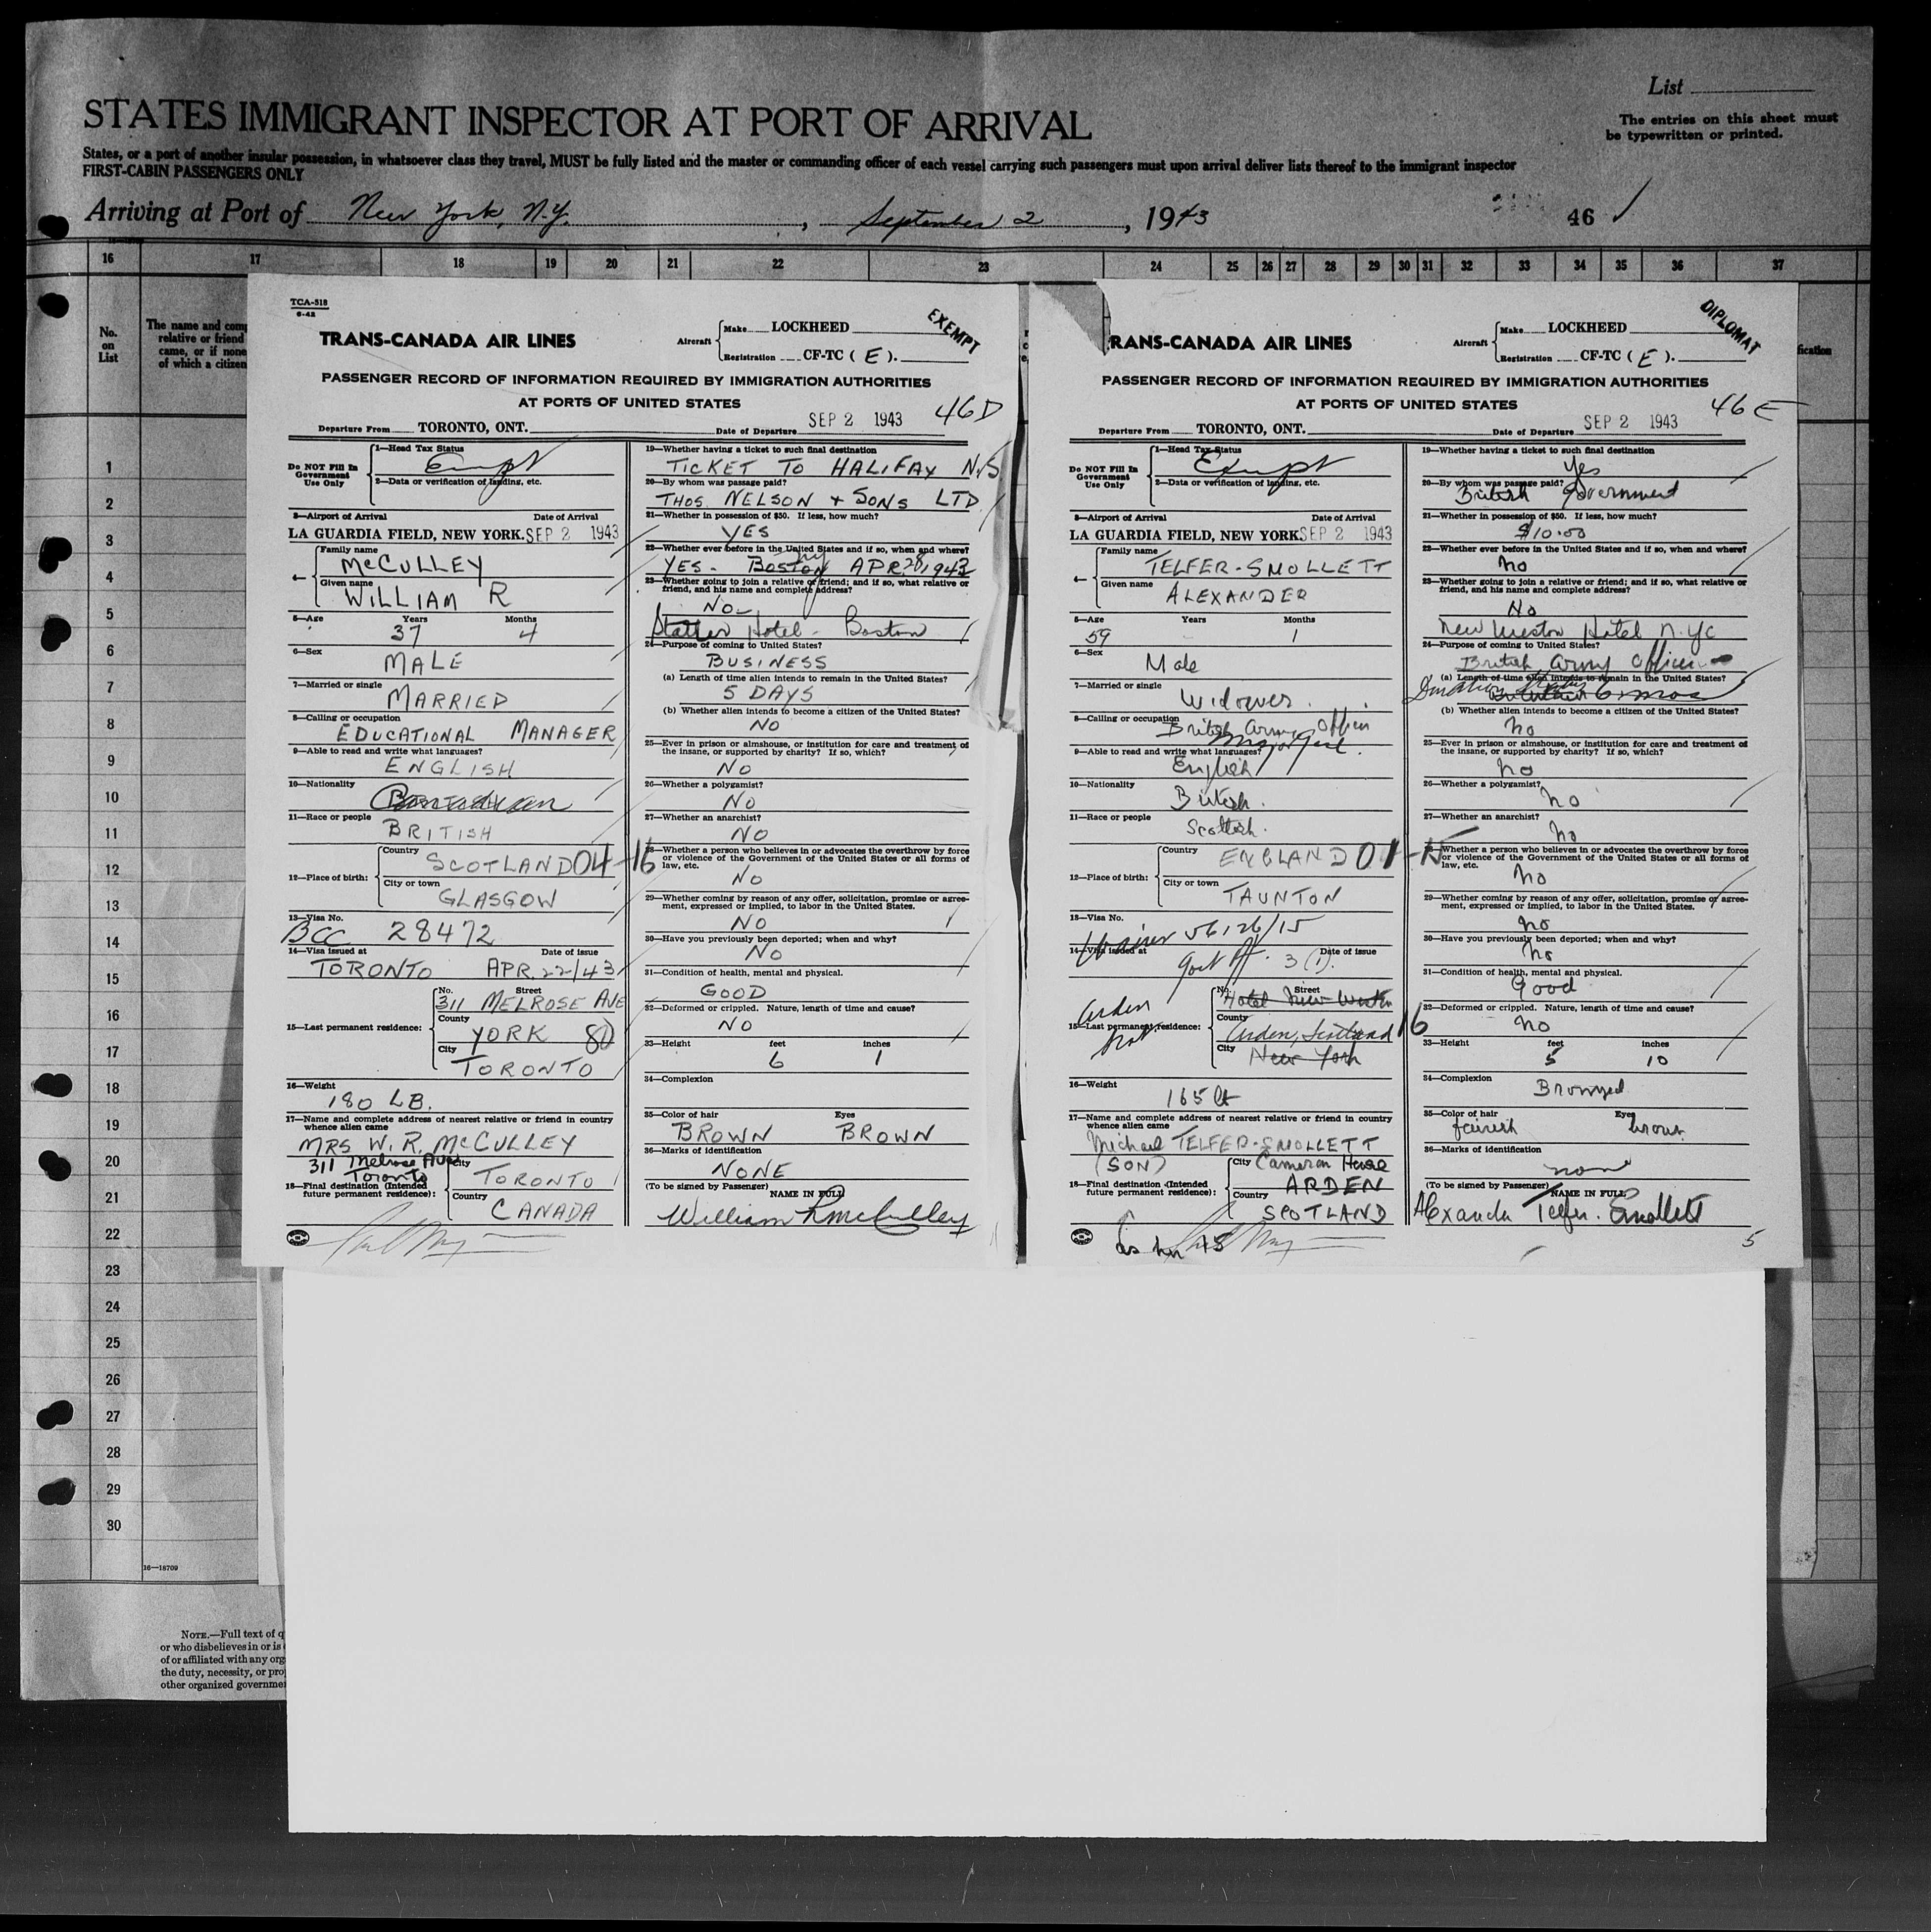 List
STATES IMMIGRANT INSPECTOR AT PORT OF ARRIVAL
The entries on this sheet must
be typewritten or printed.
States, or a port of another insular possession, in whatsoever class they travel, MUST be fully listed and the master or commanding officer of each vessel carrying such passengers must upon arrival deliver lists thereof to the immigrant inspector
FIRST-CABIN PASSENGERS ONLY
Arriving at Port of New York, N.Y., September 2, 1943
46
16 17 18 19 20 21 22 23 24 25 26 27 28 29 30 31 32 33 34 35 36 37
No.
on
List
The name and
relative or friend
came, or if none
of which a citizen
1
2
3
4
5
6
7
8
9
10
11
12
13
14
15
16
17
18
19
20
21
22
23
24
25
26
27
28
29
30
16—18709
NOTE.—Full text of
or who disbelieves in or is
of or affiliated with any
the duty, necessity, or
other organized
TCA-518
6-42
EXEMPT
TRANS-CANADA AIR LINES
Aircraft
Make LOCKHEED
Registration CF-TC ( E ).
PASSENGER RECORD OF INFORMATION REQUIRED BY IMMIGRATION AUTHORITIES
AT PORTS OF UNITED STATES
46D
Departure From TORONTO, ONT. Date of Departure SEP 2 1943
Do NOT Fill In
Government
Use Only
1—Head Tax Status
Exempt
2—Data or verification of landing, etc.
3—Airport of Arrival Date of Arrival
LA GUARDIA FIELD, NEW YORK. SEP 2 1943
4—
Family name
McCULLEY
Given name
WILLIAM R
5—Age Years Months
37 4
6—Sex
MALE
7—Married or single
MARRIED
8—Calling or occupation
EDUCATIONAL MANAGER
9—Able to read and write what languages?
ENGLISH
10—Nationality
Canadian
11—Race or people
BRITISH
12—Place of birth:
Country
SCOTLAND 04-16
City or town
GLASGOW
13—Visa No.
BCC 28472
14—Visa issued at Date of issue
TORONTO APR. 22/43
15—Last permanent residence:
No. Street
311 MELROSE AVE
County
YORK 80
City
TORONTO
16—Weight
180 LB.
17—Name and complete address of nearest relative or friend in country
whence alien came
MRS W. R. McCULLEY
311 Melrose Ave
Toronto
18—Final destination (Intended
future permanent residence):
City
TORONTO
Country
CANADA
19—Whether having a ticket to such final destination
TICKET TO HALIFAX N.S
20—By whom was passage paid?
THOS. NELSON + SONS LTD
21—Whether in possession of $50. If less, how much?
YES
22—Whether ever before in the United States and if so, when and where?
YES - Boston NY APR 28 1943
23—Whether going to join a relative or friend; and if so, what relative or
friend, and his name and complete address?
NO
Statler Hotel - Boston
24—Purpose of coming to United States?
BUSINESS
(a) Length of time alien intends to remain in the United States?
5 DAYS
(b) Whether alien intends to become a citizen of the United States?
NO
25—Ever in prison or almshouse, or institution for care and treatment of
the insane, or supported by charity? If so, which?
NO
26—Whether a polygamist?
NO
27—Whether an anarchist?
NO
28—Whether a person who believes in or advocates the overthrow by force
or violence of the Government of the United States or all forms of
law, etc.
NO
29—Whether coming by reason of any offer, solicitation, promise or agree-
ment, expressed or implied, to labor in the United States.
NO
30—Have you previously been deported; when and why?
NO
31—Condition of health, mental and physical.
GOOD
32—Deformed or crippled. Nature, length of time and cause?
NO
33—Height feet inches
6 1
34—Complexion
35—Color of hair Eyes
BROWN BROWN
36—Marks of identification
NONE
(To be signed by Passenger) NAME IN FULL
William R McCulley
DIPLOMAT
TRANS-CANADA AIR LINES
Aircraft
Make LOCKHEED
Registration CF-TC ( E ).
PASSENGER RECORD OF INFORMATION REQUIRED BY IMMIGRATION AUTHORITIES
AT PORTS OF UNITED STATES
46E
Departure From TORONTO, ONT. Date of Departure SEP 2 1943
Do NOT Fill In
Government
Use Only
1—Head Tax Status
Exempt
2—Data or verification of landing, etc.
3—Airport of Arrival Date of Arrival
LA GUARDIA FIELD, NEW YORK. SEP 2 1943
4—
Family name
TELFER-SMOLLETT
Given name
ALEXANDER
5—Age Years Months
59 1
6—Sex
Male
7—Married or single
Widower.
8—Calling or occupation
British Army Officer
Major Genl.
9—Able to read and write what languages?
English
10—Nationality
British.
11—Race or people
Scottish.
12—Place of birth:
Country
ENGLAND 01-15
City or town
TAUNTON
13—Visa No.
56126/15
14—Visa issued at Date of issue
Govt Off. 3(1).
15—Last permanent residence:
Arden
Scot
No. Street
Hotel New Weston
County
Arden, Scotland 16
City
New York
16—Weight
165 lb
17—Name and complete address of nearest relative or friend in country
whence alien came
Michael TELFER-SMOLLETT
(SON)
18—Final destination (Intended
future permanent residence):
City Cameron House
ARDEN
Country
SCOTLAND
19—Whether having a ticket to such final destination
Yes
20—By whom was passage paid?
British Government
21—Whether in possession of $50. If less, how much?
$10.00
22—Whether ever before in the United States and if so, when and where?
No
23—Whether going to join a relative or friend; and if so, what relative or
friend, and his name and complete address?
No
New Weston Hotel N.Y.C
24—Purpose of coming to United States?
British Army Officer
(a) Length of time alien intends to remain in the United States?
Duration Status 6 mos
(b) Whether alien intends to become a citizen of the United States?
no
25—Ever in prison or almshouse, or institution for care and treatment of
the insane, or supported by charity? If so, which?
no
26—Whether a polygamist?
no
27—Whether an anarchist?
no
28—Whether a person who believes in or advocates the overthrow by force
or violence of the Government of the United States or all forms of
law, etc.
no
29—Whether coming by reason of any offer, solicitation, promise or agree-
ment, expressed or implied, to labor in the United States.
no
30—Have you previously been deported; when and why?
no
31—Condition of health, mental and physical.
Good
32—Deformed or crippled. Nature, length of time and cause?
no
33—Height feet inches
5 10
34—Complexion
Bronzed
35—Color of hair Eyes
fairish brown
36—Marks of identification
none
(To be signed by Passenger) NAME IN FULL
Alexander Telfer-Smollett
5